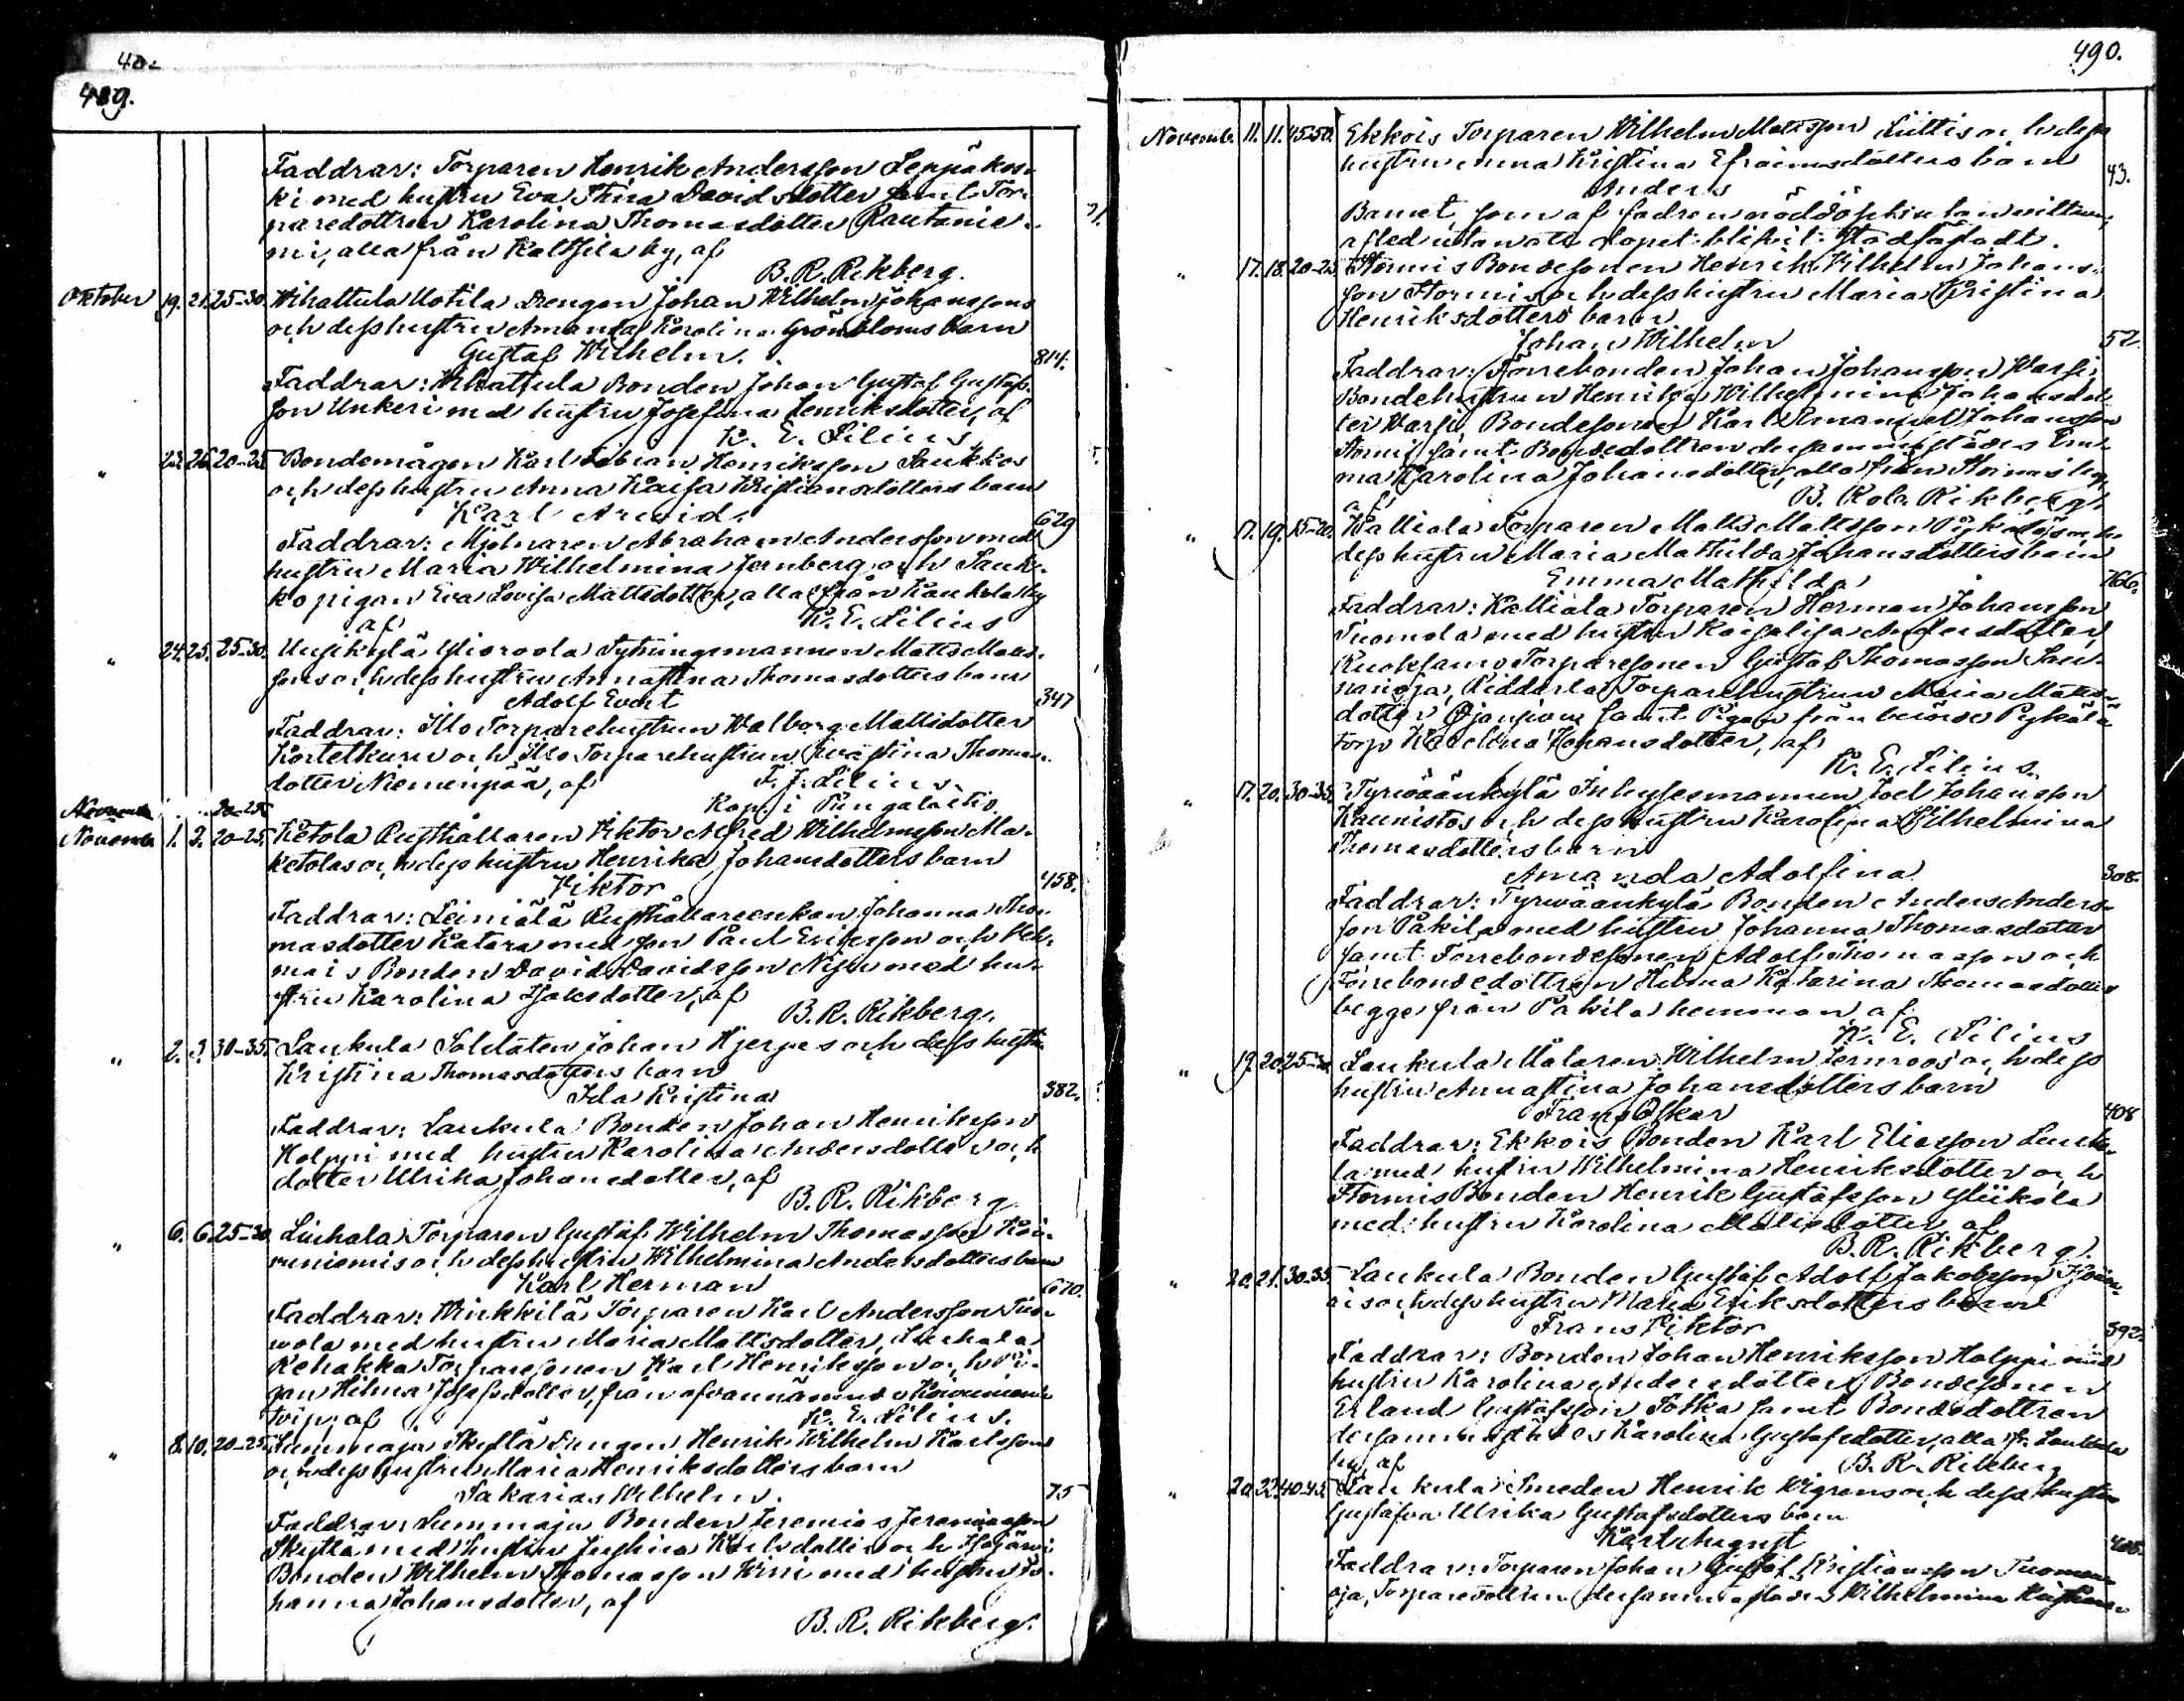 40.
489.
Faddrar: Torparen Henrik Andersson Leppäkos-
ki med hustru Eva Stina Davidsdotter samt Tor-
paredottren Karolina Thomasdotter Rautanie-
mi, alla från Kaltsila by, af
B. R. Rikberg.
Oktober 19. 21. 25-30. Wihattula Uotila Drengen Johan Wilhelm Johanssons
och dess hustru Amanda Karolina Grönbloms barn
Gustaf Wilhelm. 814.
Faddrar: Wihattula Bonden Johan Gustaf Gustafs-
son Unkeri med hustru Josefina Henriksdotter, af
K. E. Lilius.
" 23. 26. 20-25 Bondemågen Karl Fabian Henriksson Saukkos
och dess hustru Anna Kaisa Kristiansdotters barn
Karl Arvid. 629
Faddrar: Mjölnaren Abraham Andersson med
hustru Maria Wilhelmina Jernberg och Sauk-
ko pigan Eva Lovisa Mattsdotter, alla från Kaukola by
af K. E. Lilius
" 24. 25. 25-30. Uusikylä Ylisoola Sytningsmannen Matts Matts-
sons och dess hustru Annastina Thomasdotters barn
Adolf Evert 347
Faddrar: Illo Torparehustrun Walborg Mattsdotter
Kortetkuru och Illo Torparehustrun Ewastina Thomas-
dotter Niemenpää, af F. J. Lilius.
Kap. i Pungalaitio
November 20-25
November 1. 3. 20-25. Ketola Rusthållaren Viktor Alfred Wilhelmsson Ma-
ketolas och dess hustru Henrika Johansdotters barn
Viktor 458.
Faddrar: Leiniälä Rusthållareenkan Johanna Tho-
masdotter Katara med son Paul Eriksson och Veh-
mais Bonden David Davidsson Nisu med hu-
stru Karolina Isaksdotter, af
B. R. Rikberg.
" 2. 3. 30-35. Laukula Soldaten Johan Hjerpes och dess hustru
Kristina Thomasdotters barn
Ida Kristina 382.
Faddrar: Laukula Bonden Johan Henriksson
Holppi med hustru Karolina Andersdotter och
dotter Ulrika Johansdotter, af
B. R. Rikberg
" 6. 6. 25-30. Liuhala Torparen Gustaf Wilhelm Thomasson Koi-
vuniemis och dess hustru Wilhelmina Andersdotters barn
Karl Herman 670.
Faddrar: Kirkkilä Torparen Karl Andersson Tuo-
wola med hustru Maria Mattsdotter, Liuhala
Rehakka Torparesonen Karl Henriksson och Pi-
gan Hilma Josefsdotter, från ofvannämnde Koivuniemi
torp, af K. E. Lilius.
" 8. 10. 20-25. Lummaja Skyttä Drengen Henrik Wilhelm Karlssons
och dess hustru Maria Henriksdotters barn
Sakarias Wilhelm. 75
Faddrar: Lummaja Bonden Jeremias Jeremiasson
Skyttä med hustru Justina Karlsdotter och
Bonden Wilhelm Thomasson Wirri med hustru Jo-
hanna Johansdotter, af
B. R. Rikberg.
490.
November 11. 11. 45-50. Ekkois Torparen Wilhelm Mattsson Liittis och dess
hustru Anna Kristina Efraimsdotters barn
Anders 43.
Barnet, som af fadren nöddöptes utan vittnen,
afled utan att dopet blifvit stadfästadt.
" 17. 18. 20-25. Stormis Bondesonen Henrik Wilhelm Johans-
son Stormis och dess hustru Maria Kristina
Henriksdotters barn
Johan Wilhelm 52.
Faddrar: Förrebonden Johan Johansson Warsi,
Bondehustrun Henrika Wilhelmina Johansdot-
ter Warsi, Bondesonen Karl Emanuel Johansson
samt Bondedottren dersammastädes Em-
ma Karolina Johansdotter, alla från Stormis by,
af B. Rob. Rikberg.
" 17. 19. 15-20. Kalliala Torparen Matts Mattsson Pykälös och
dess hustru Maria Mathilda Johansdotters barn
Emma Mathilda 766.
Faddrar: Kalliala Torparen Herman Johansson
Tuomola med hustru Kaisalisa Andersdotter,
Ruoksamo Torparesonen Gustaf Thomasson
Ridderla Torparehustrun Maria Matts-
dotter Ojansivu samt Pigan från berörde Pykälä
torp Karolina Johansdotter, af
K. E. Lilius.
" 17. 20. 30-35. Tyrväänkylä Inhysesmannen Joel Johansson
Kaunistos och dess hustru Karolina Wilhelmina
Thomasdotters barn
Amanda Adolfina 308.
Faddrar: Tyrväänkylä Bonden Anders Anders-
son Pakila med hustru Johanna Thomasdotter
samt Förrebondesonen Adolf Thomasson och
Förrebondedottren Helma Katarina Thomasdotter
begge från Pakila hemman, af
K. E. Lilius
" 19. 20. 25-30. Laukula Målaren Wilhelm Jernroos och dess
hustru Annastina Johansdotters barn
Frans Oskar 408
Faddrar: Ekkois Bonden Karl Eliasson
la med hustru Wilhelmina Henriksdotter och
Stormis Bonden Henrik Gustafsson Yliskola
med hustru Karolina Mattsdotter, af
B. R. Rikberg.
" 20. 21. 30-35. Laukula Bonden Gustaf Adolf Jakobsson
och dess hustru Maria Eriksdotters barn
Frans Viktor 392.
Faddrar: Bonden Johan Henriksson Holppi med
hustru Karolina Andersdotter, Bondesonen
Erland Gustafsson Potka samt Bondedottren
dersammastädes Karolina Gustafsdotter, alla fr. Laukula
by, af B. R. Rikberg
" 20. 22. 40-45. Laukula Smeden Henrik Wigrens och dess hustru
Gustafva Ulrika Gustafsdotters barn
Karl August 405.
Faddrar: Torparen Johan Gustaf Kristiansson Tuomen-
oja, Torparedottren dersammastädes Wilhelmina Kristians-